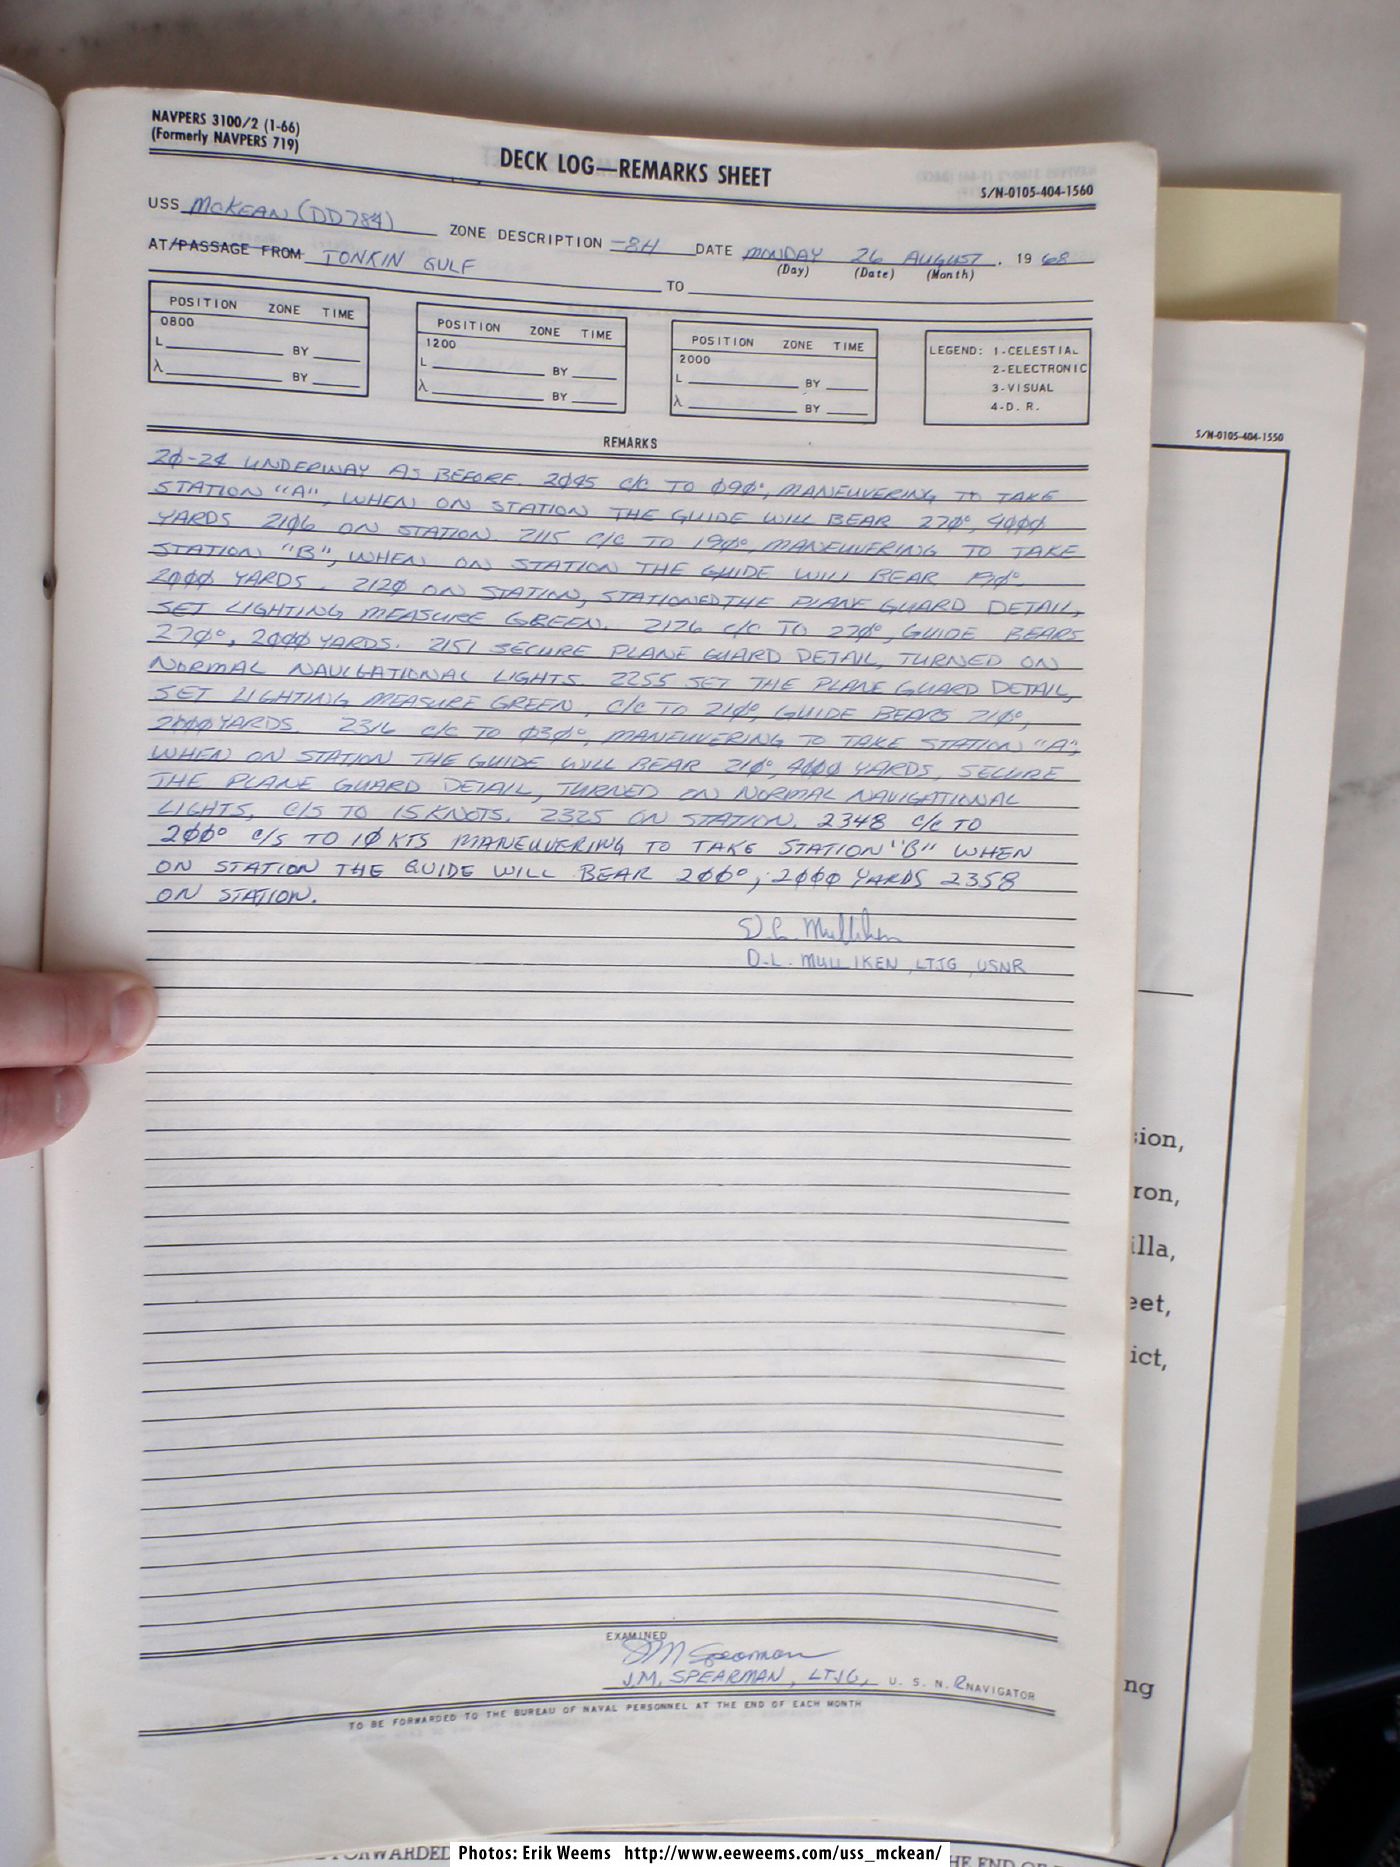 NAVPERS 3100/2 (1-66)
(Formerly NAVPERS 719)
DECK LOG—REMARKS SHEET
S/N-0105-404-1560
USS McKEAN (DD784) ZONE DESCRIPTION -8H DATE MONDAY 26 AUGUST, 1968
(Day) (Date) (Month)
AT/PASSAGE FROM TONKIN GULF TO
POSITION ZONE TIME
0800
L BY
λ BY
POSITION ZONE TIME
1200
L BY
λ BY
POSITION ZONE TIME
2000
L BY
λ BY
LEGEND: 1-CELESTIAL
2-ELECTRONIC
3-VISUAL
4-D. R.
REMARKS
20-24 UNDERWAY AS BEFORE. 2045 C/C TO 090°, MANEUVERING TO TAKE
STATION "A", WHEN ON STATION THE GUIDE WILL BEAR 270°, 4000
YARDS 2106 ON STATION. 2115 C/C TO 190°, MANEUVERING TO TAKE
STATION "B", WHEN ON STATION THE GUIDE WILL BEAR 190°
2000 YARDS. 2120 ON STATION, STATIONED THE PLANE GUARD DETAIL,
SET LIGHTING MEASURE GREEN. 2126 C/C TO 270°, GUIDE BEARS
270°, 2000 YARDS. 2151 SECURE PLANE GUARD DETAIL, TURNED ON
NORMAL NAVIGATIONAL LIGHTS. 2255 SET THE PLANE GUARD DETAIL,
SET LIGHTING MEASURE GREEN, C/C TO 210°, GUIDE BEARS 210°,
2000 YARDS. 2316 C/C TO 030°, MANEUVERING TO TAKE STATION "A",
WHEN ON STATION THE GUIDE WILL BEAR 210°, 4000 YARDS, SECURE
THE PLANE GUARD DETAIL, TURNED ON NORMAL NAVIGATIONAL
LIGHTS, C/S TO 15 KNOTS. 2325 ON STATION. 2348 C/C TO
200° C/S TO 10 KTS MANEUVERING TO TAKE STATION "B" WHEN
ON STATION THE GUIDE WILL BEAR 200°, 2000 YARDS 2358
ON STATION.
D. L. Mulliken
D.L. MULLIKEN, LTJG, USNR
EXAMINED
JM Spearman
J.M. SPEARMAN, LTJG, U. S. N. R NAVIGATOR
TO BE FORWARDED TO THE BUREAU OF NAVAL PERSONNEL AT THE END OF EACH MONTH
S/N-0105-404-1550
sion,
ron,
illa,
eet,
ict,
ng
FORWARDED
HE END OF
Photos: Erik Weems http://www.eeweems.com/uss_mckean/